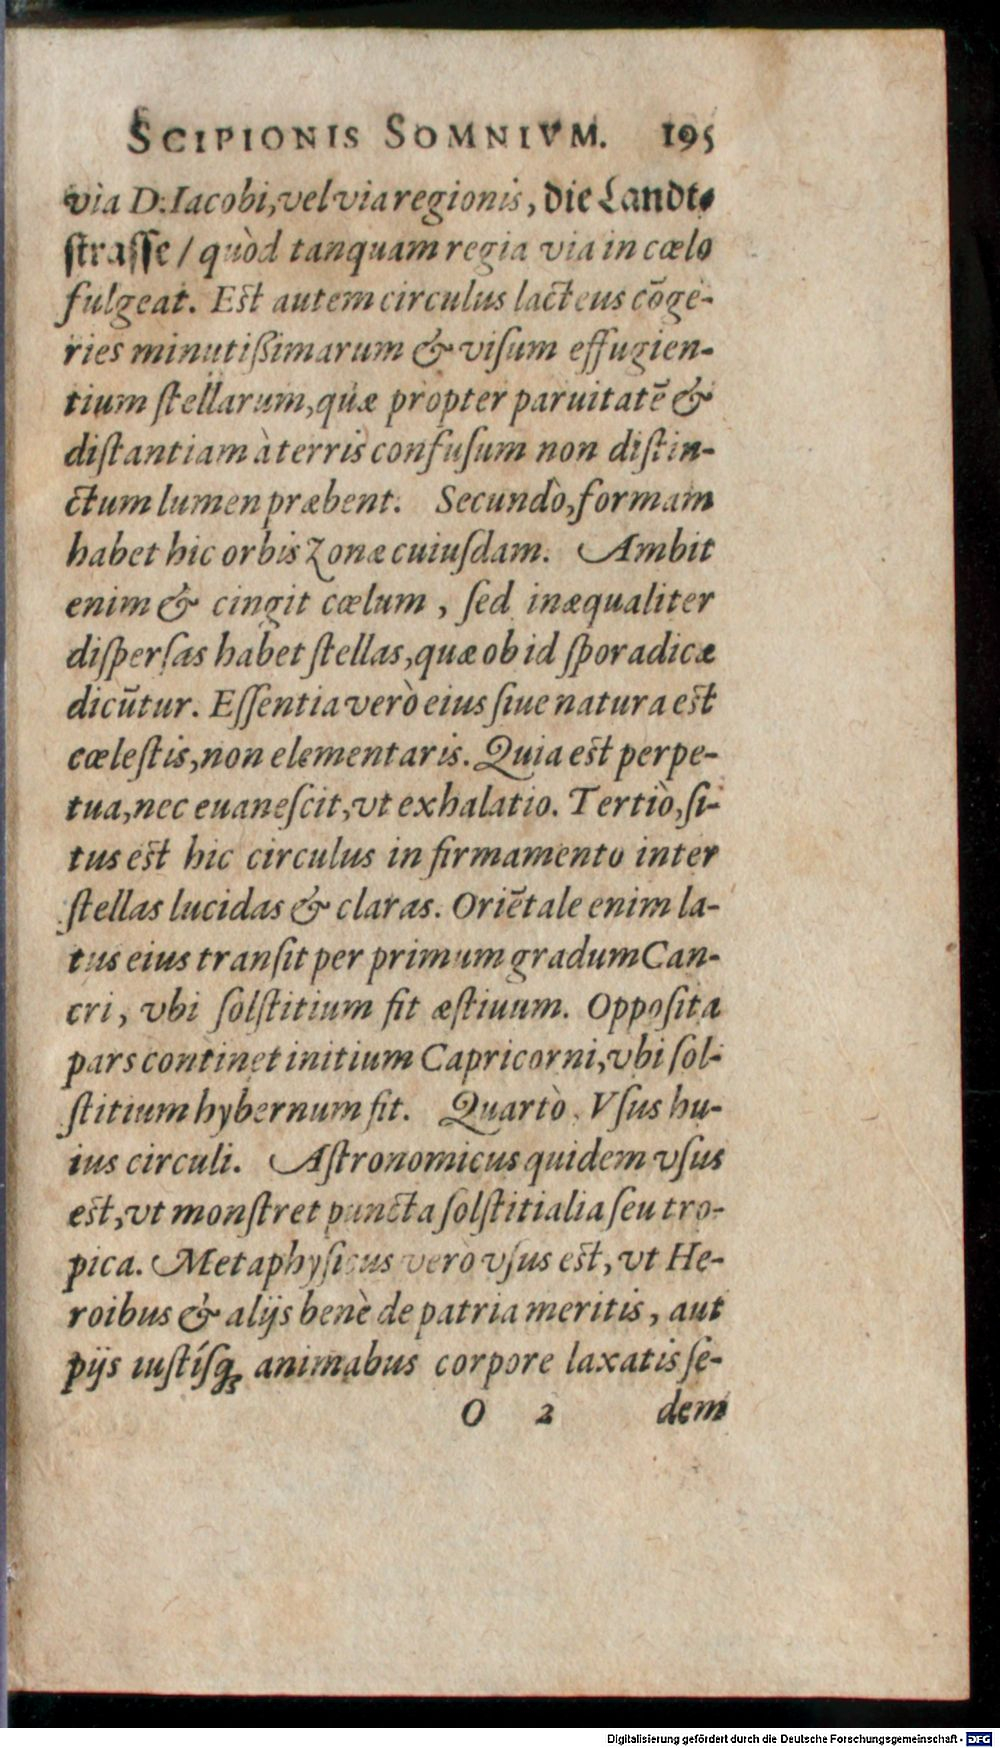 SCIPIONIS SOMNIVM. 195
via D. Iacobi, vel via regionis, die Landt⸗
strasse / quòd tanquam regia via in cœlo
fulgeat. Est autem circulus lacteus cōge-
ries minutißimarum & viſum effugien-
tium ſtellarum, quæ propter paruitatē &
diſtantiam à terris confuſum non diſtin-
ctum lumen præbent. Secundò, formam
habet hic orbis Zonæ cuiuſdam. Ambit
enim & cingit cœlum, ſed inæqualiter
diſperſas habet ſtellas, quæ ob id ſporadicæ
dicūtur. Eſſentia verò eius ſiue natura est
cœleſtis, non elementaris. Quia est perpe-
tua, nec euaneſcit, vt exhalatio. Tertiò, ſi-
tus est hic circulus in firmamento inter
ſtellas lucidas & claras. Oriētale enim la-
tus eius tranſit per primum gradum Can-
cri, vbi ſolſtitium fit æſtiuum. Oppoſita
pars continet initium Capricorni, vbi ſol-
ſtitium hybernum fit. Quartò. Vſus hu-
ius circuli. Aſtronomicus quidem vſus
est, vt monſtret puncta ſolſtitialia ſeu tro-
pica. Metaphyſicus verò vſus est, vt He-
roibus & alijs benè de patria meritis, aut
pijs iustíſq; animabus corpore laxatis ſe-
O 2 dem
Digitalisierung gefördert durch die Deutsche Forschungsgemeinschaft - DFG